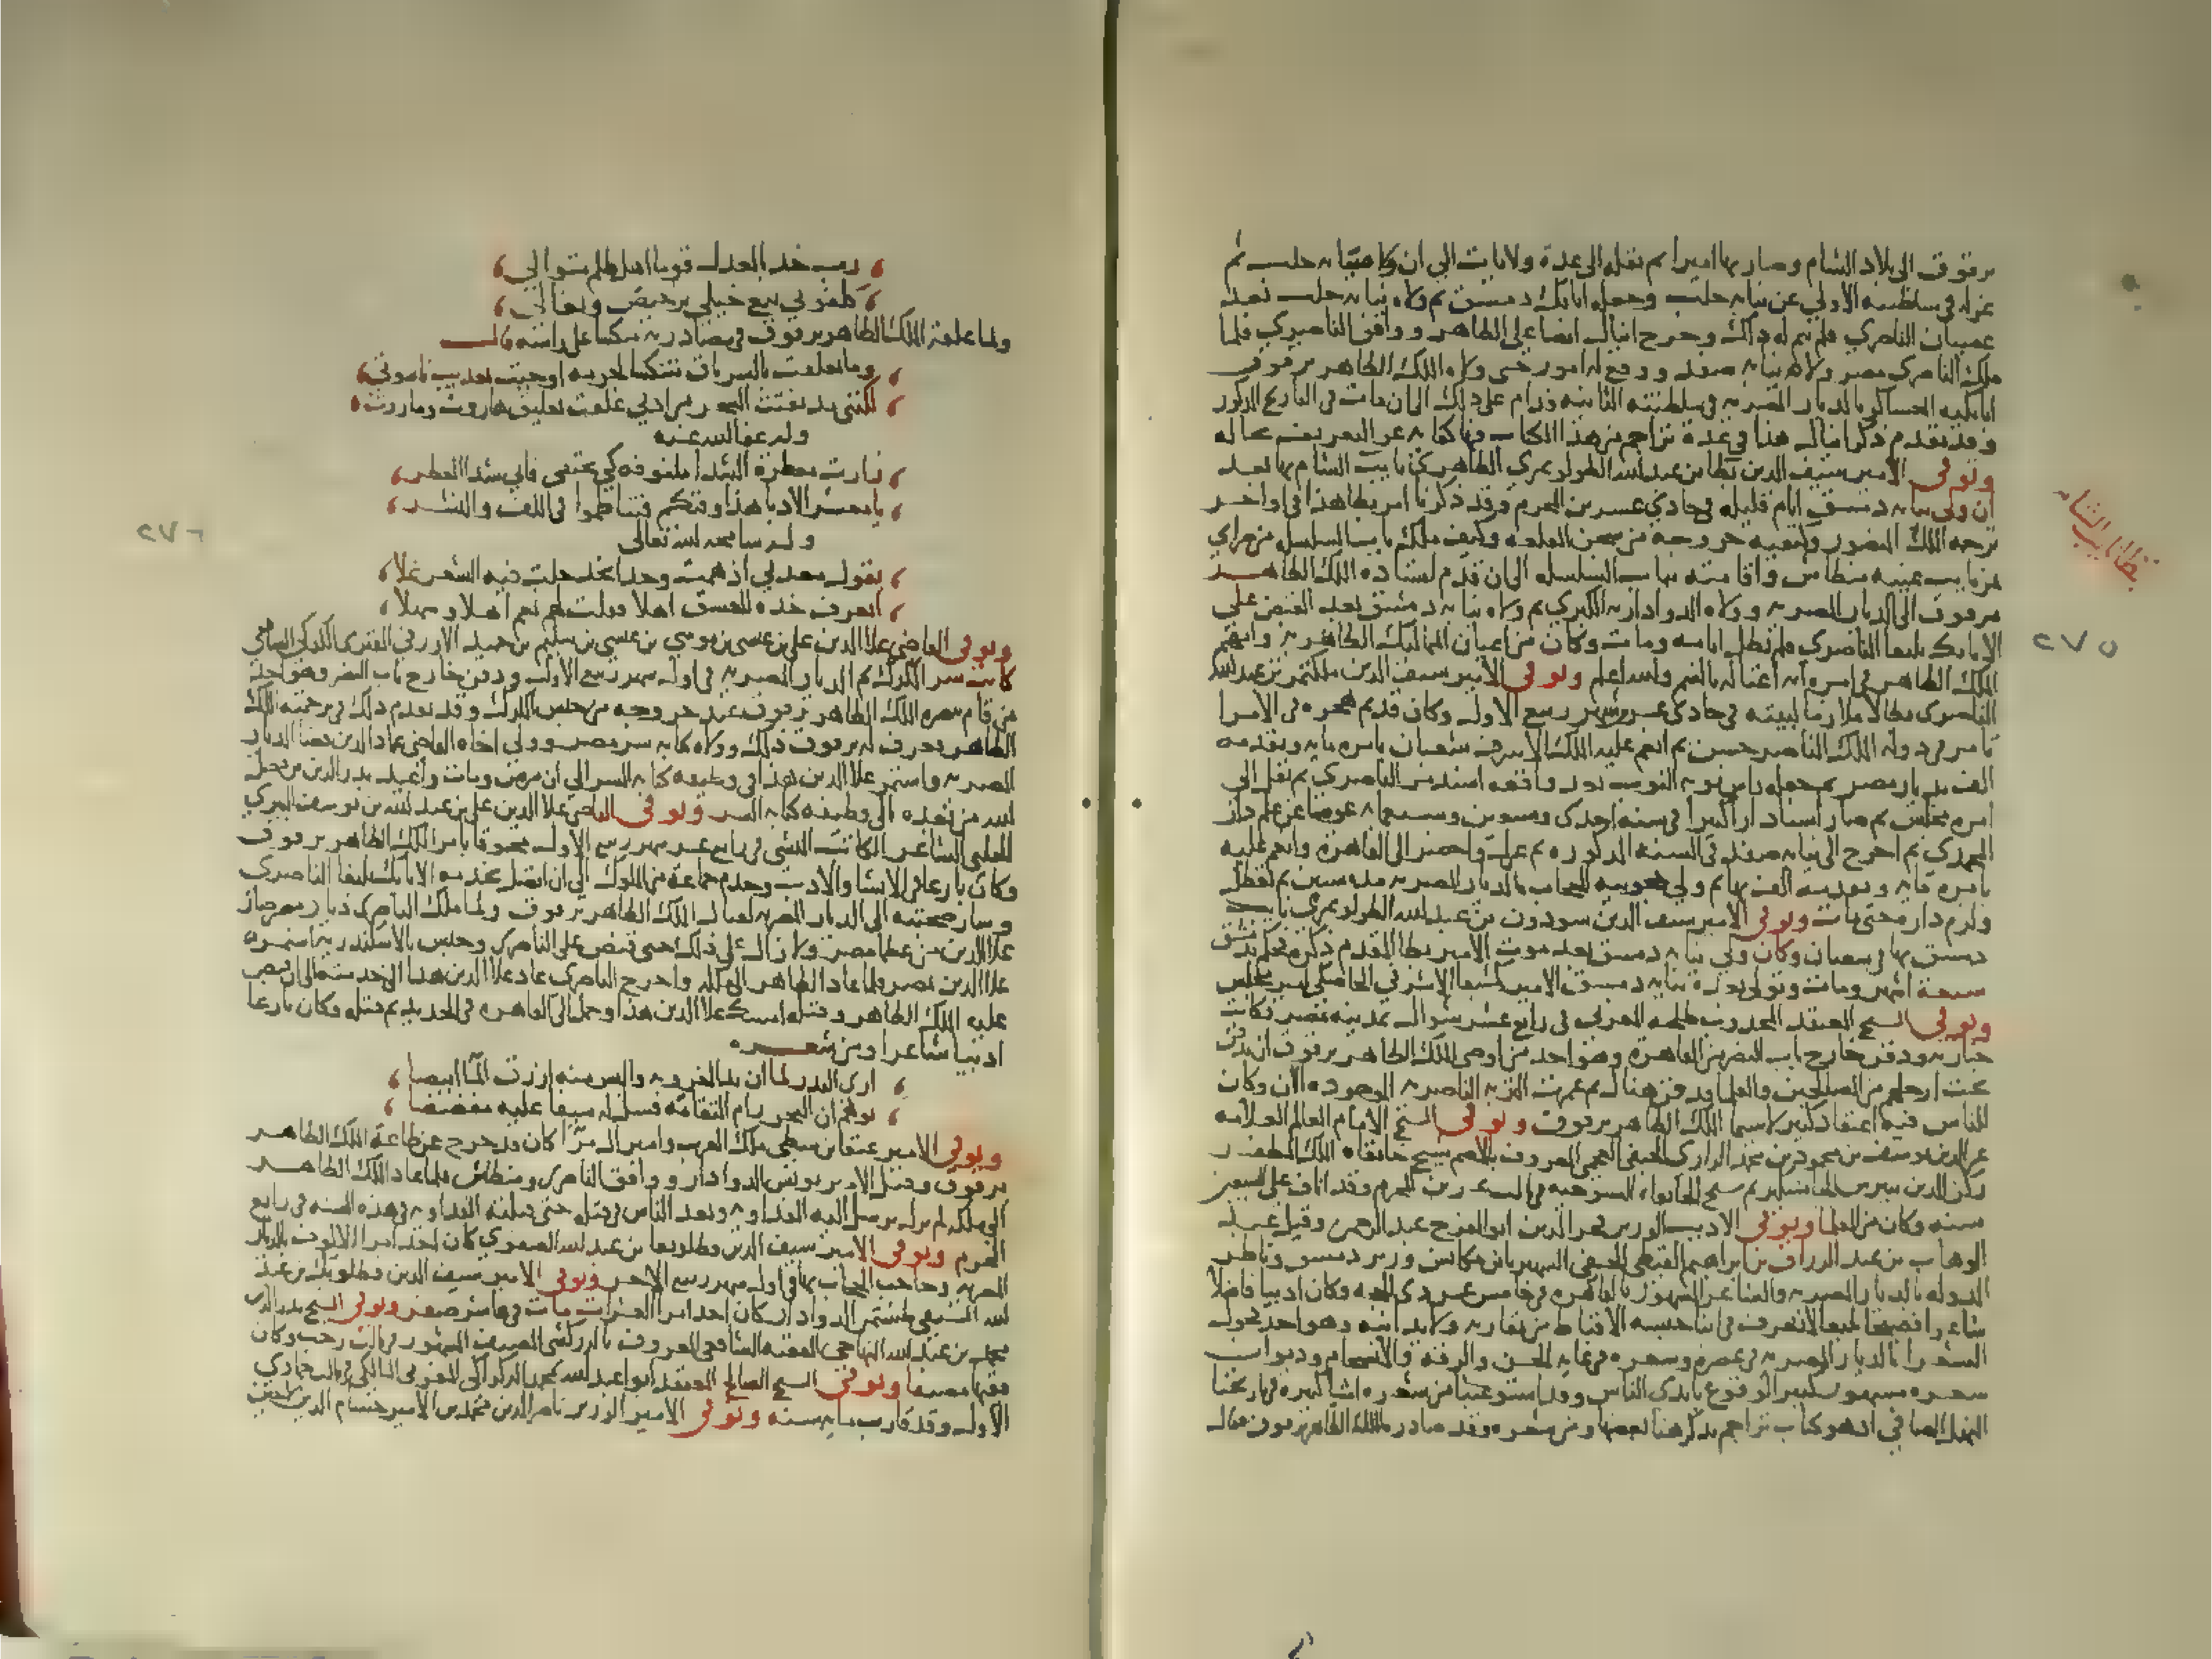 برقوق الى بلاد الشام وصار بها اميرا ثم نقله الى عدة ولايات الى ان ولاه نيابة حلب ثم
عزله في سلطنته الاولى عن نيابة حلب وجعله اتابك دمشق ثم ولاه نيابة حلب بعد
عصيان الناصري فلم يتم له ذلك وخرج اينال ايضا على الظاهر ووافق الناصري فلما
ملك الناصري مصر ولاه نيابة صفد ووقع له امور حتى ولاه الملك الظاهر برقوق
اتابكية العساكر بالديار المصرية في سلطنته الثانية ودام على ذلك الى ان مات في التاريخ المذكور
وقد تقدم ذكر اينال هذا في عدة تراجم من هذا الكتاب فيها كفاية عن التعريف بحاله
وتوفى الامير سيف الدين بطا بن عبد الله الطولوتمري الظاهري نايب الشام بها بعد
ان ولى نيابة دمشق ايام قليلة في حادي عشرين المحرم وقد ذكرنا امر بطا هذا في اواخر
ترجمة الملك المنصور وكيفية خروجه من سجن القلعة وكيف ملك باب السلسلة من صراي
تمر نايب غيبة منطاش واقامته بباب السلسلة الى ان قدم استاذه الملك الظاهر
برقوق الى الديار المصرية وولاه الدوادارية الكبرى ثم ولاه نيابة دمشق بعد القبض على
الاتابك يلبغا الناصري فلم تطل ايامه ومات وكان من اعيان المماليك الظاهرية واتهم
الملك الظاهر في امره انه اغتاله بالسم والله اعلم وتوفى الامير سيف الدين ملكتمر بن عبد الله
الناصري بطالا ملازما لبيته في حادي عشر شهر ربيع الاول وكان قديم هجرة في الامرا
تامر في دولة الملك الناصر حسن ثم انعم عليه الملك الاشرف شعبان بامرة ماية وتقدمة
الف بديار مصر ثم جعله راس نوبة النوب بعد واقعة اسندمر الناصري ثم نقل الى
امرة مجلس ثم صار استادارا كبيرا في سنة احدى وسبعين وسبعماية عوضا عن علم دار
المحمدي ثم اخرج الى نيابة صفد في السنة المذكورة ثم عزل واحضر الى القاهرة وانعم عليه
بامرة ماية وتقدمة الف بها ثم ولي حجوبية الحجاب بالديار المصرية مدة سنين ثم تعطل
ولزم داره حتى مات وتوفى الامير سيف الدين سودون بن عبد الله الطولوتمري نايب
دمشق بها في شعبان وكان ولي نيابة دمشق بعد موت الامير بطا المقدم ذكره فحكم بدمشق
سبعة اشهر ومات وتولى بعده نيابة دمشق الامير كمشبغا الاشرفي الخاصكي امير مجلس
وتوفى الشيخ المعتقد المجذوب طلحة المغربي في رابع عشر شوال بمدينة مصر وكانت
جنازته ودفن خارج باب النصر من القاهرة وهو احد من اوصى الملك الظاهر برقوق ان يدفن
تحت ارجلهم من الصالحين والعلما ودفن هناك ثم عمرت التربة الناصرية الموجودة الان وكان
للناس فيه اعتقاد كبير لا سيما الملك الظاهر برقوق وتوفى الشيخ الامام العالم العلامة
عز الدين يوسف بن محمود بن محمد الرازي الحنفي العجمي المعروف بالاصم شيخ خانقاه الملك المظفر
ركن الدين بيبرس الجاشنكير ثم شيخ الخانقاه الشيخونية في المحرم وقد اناف على السبعين
سنة وكان من العلما وتوفى الاديب الوزير فخر الدين ابو الفرج عبد الرحمن وقيل عبد
الوهاب بن عبد الرزاق بن ابراهيم القبطي الحنفي الشهير بابن مكانس وزير دمشق وناظر
الدولة بالديار المصرية والشاعر المشهور بالقاهرة في خامس عشر ذي الحجة وكان اديبا فاضلا
شاعرا فصيحا بليغا لا نعرف في ابنا جنسه الاقباط من يقاربه ولا يدانيه وهو احد فحول
الشعرا بالديار المصرية في عصره وشعره في غاية الحسن والرقة والانسجام وديوان
شعره مشهور كثير الوقوع بايدي الناس وقد استوعبنا من شعره اشيا كثيرة في تاريخنا
المنهل الصافي اذ هو كتاب تراجم نذكر هنا بعضها ومن شعره وقد صادره الملك الظاهر برقوق فقال
بطا نايب الشام
٢٧٥
رب خذ بالعدل قوما اهل ظلم متوالي
كلفوني بيع خيلي برخيص وبغالي
ولما علقه الملك الظاهر برقوق في مصادرته منكسا على راسه قال
وما تعلقت بالسرياق منتكسا لجرمة اوجبت تعذيب ناسوتي
لكنني مذ نفثت السحر من ادبي علقت تعليق هاروت وماروت
وله عفا الله عنه
زارت معطرة الشذا ملفوفة كي تختفي فابى شذا العطر
يا معشر الادبا هذا وقتكم فتناظموا في اللف والنشر
وله سامحه الله تعالى
يقول معذبي اذ همت وجدا بخد خلت فيه الشعر نملا
اتعرف خده للعشق اهلا فقلت لهم نعم اهلا وسهلا
وتوفى القاضي علا الدين علي بن عيسى بن موسى بن عيسى بن سليم بن حميد الازرقي المقيري الكركي الشافعي
كاتب سر الكرك ثم الديار المصرية في اول شهر ربيع الاول ودفن خارج باب النصر وهو احد
من قام بنصرة الملك الظاهر برقوق عند خروجه من حبس الكرك وقد تقدم ذلك في ترجمة الملك
الظاهر وعرف له برقوق ذلك وولاه كتابة سر مصر وولى اخاه القاضي عماد الدين قضا الديار
المصرية واستمر علا الدين هذا في وظيفة كتابة السر الى ان مرض ومات واعيد بدر الدين بن فضل
الله من بعده الى وظيفة كتابة السر وتوفى القاضي علا الدين علي بن عبد الله بن يوسف البيري
الحلبي الشاعر الكاتب المنشي في رابع عشر شهر ربيع الاول مخنوقا بامر الملك الظاهر برقوق
وكان بارعا في الانشا والادب وخدم جماعة من الملوك الى ان اتصل بخدمة الاتابك يلبغا الناصري
وسار صحبته الى الديار المصرية لقتال الملك الظاهر برقوق ولما ملك الناصري ديار مصر صار
علا الدين من عظما مصر ولا زال على ذلك حتى قبض على الناصري وحبس بالاسكندرية استمر
علا الدين بمصر فلما عاد الظاهر الى ملكه واخرج الناصري عاد علا الدين هذا الى خدمته الى ان قبض
عليه الملك الظاهر وقتله امسك علا الدين هذا وحمل الى القاهرة في الحديد ثم قتل وكان بارعا
اديبا شاعرا ومن شعره
ارى البدر لما ان بدا لغروبه والبس منه ازرق المآ ابيضا
توهم ان البحر رام التقامه فسل له سيفا عليه مفضضا
وتوفى الامير عنقا بن شطي ملك العرب وامير ال مرا كان قد خرج عن طاعة الملك الظاهر
برقوق وقتل الامير يونس الدوادار ووافق الناصري ومنطاش فلما عاد الملك الظاهر
الى ملكه لم يزل يرسل اليه الفداوية ويعد الناس في قتله حتى قتلته الفداوية في هذه السنة في رابع
المحرم وتوفى الامير سيف الدين قطلوبغا بن عبد الله الصفوي كان احد امرا الالوف بالديار
المصرية وحاجب الحجاب بها في اول شهر ربيع الاخر وتوفى الامير سيف الدين قطلوبك بن عبد
الله السيفي طشتمر الدوادار كان احد امرا العشرات مات في عاشر صفر وتوفى الشيخ بدر الدين
محمد بن عبد الله المنهاجي الفقيه الشافعي المعروف بالزركشي المصنف المشهور في ثالث رجب وكان
فقيها مصنفا وتوفى الشيخ الصالح المعتقد ابو عبد الله محمد الركراكي المغربي المالكي في ثالث جمادي
الاولى وقد قارب ماية سنة وتوفى الامير الوزير ناصر الدين محمد بن الامير حسام الدين لاجين
٢٧٦